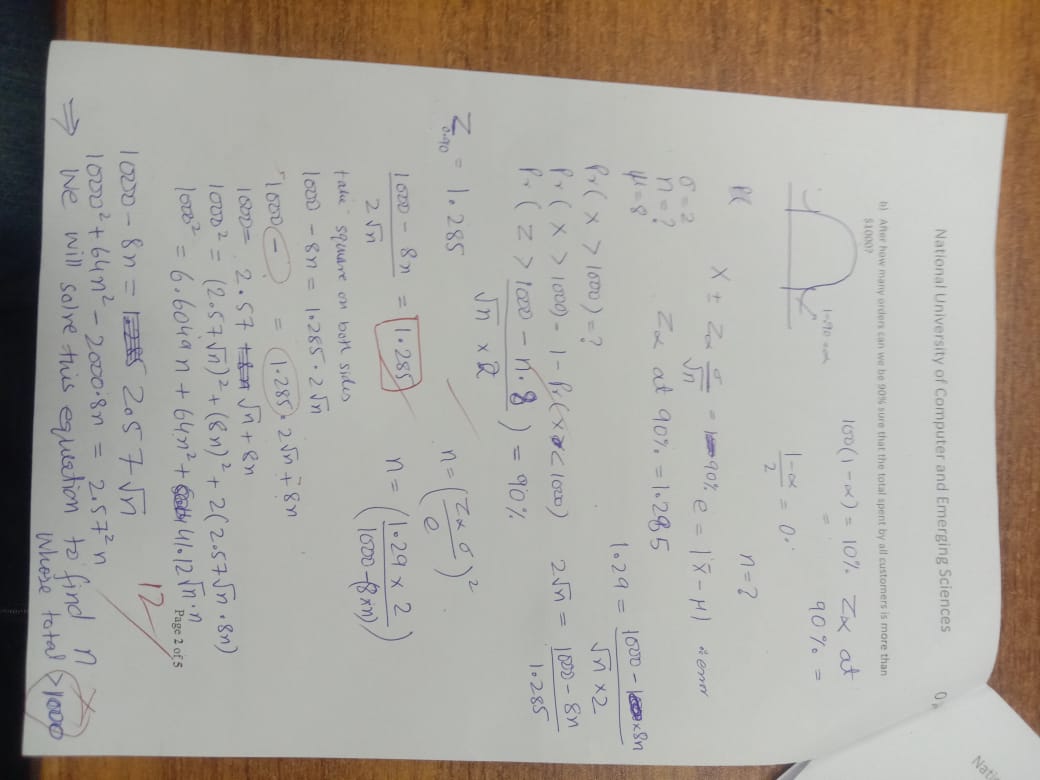 National University of Computer and Emerging Sciences
b) After how many orders can we be 90% sure that the total spent by all customers is more than
$1000?
100(1-α) = 10%. Zα at
= 90% =
1-α/2 = 0.
n=?
X ± Zα σ/√n = 90% e = |x̄ - μ| ∵ error
σ=2
n=?
μ=8
Zα at 90% = 1.285
Pr(X > 1000) = ?
Pr(X > 1000) = 1 - Pr(X < 1000)
Pr(Z > (1000 - n.8)/(√n × 2)) = 90%
1.29 = (1000 - 8n)/(√n × 2)
2√n = (1000 - 8n)/1.285
Z0.90 = 1.285
n = (Zα σ/e)²
(1000 - 8n)/(2√n) = 1.285
n = (1.29 × 2/(1000-(8×n)))
take square on both sides
1000 - 8n = 1.285 . 2√n
1000 - = 1.285 . 2√n + 8n
1000 = 2.57 √n + 8n
1000² = (2.57√n)² + (8n)² + 2(2.57√n . 8n)
1000² = 6.6049n + 64n² + 41.12√n . n
1000 - 8n = 2.57√n
12
Page 2 of 5
1000² + 64n² - 2000.8n = 2.57²n
⇒ We will solve this equation to find n
whose total > 1000
Nati